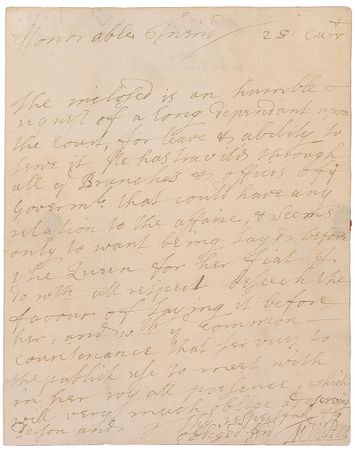 Honorable Friend 28 Curr^t
The inclosed is an humble
request of a long dependant upon
the Court, for leave & ability to
serve it. He has travild through
all y^e Branches & offices of y^e
Governm^t that could have any
relation to the affaire, & seems
only to want being layd before
the Queen for her fiat I
do with all respect beseech the
favour of laying it before
her, and w^th y^t Common
countenance that services to
the publick use to meet with
in her royall presence, which
will very much oblige a deserving
person and
thy respectfull &
obliged fr^d